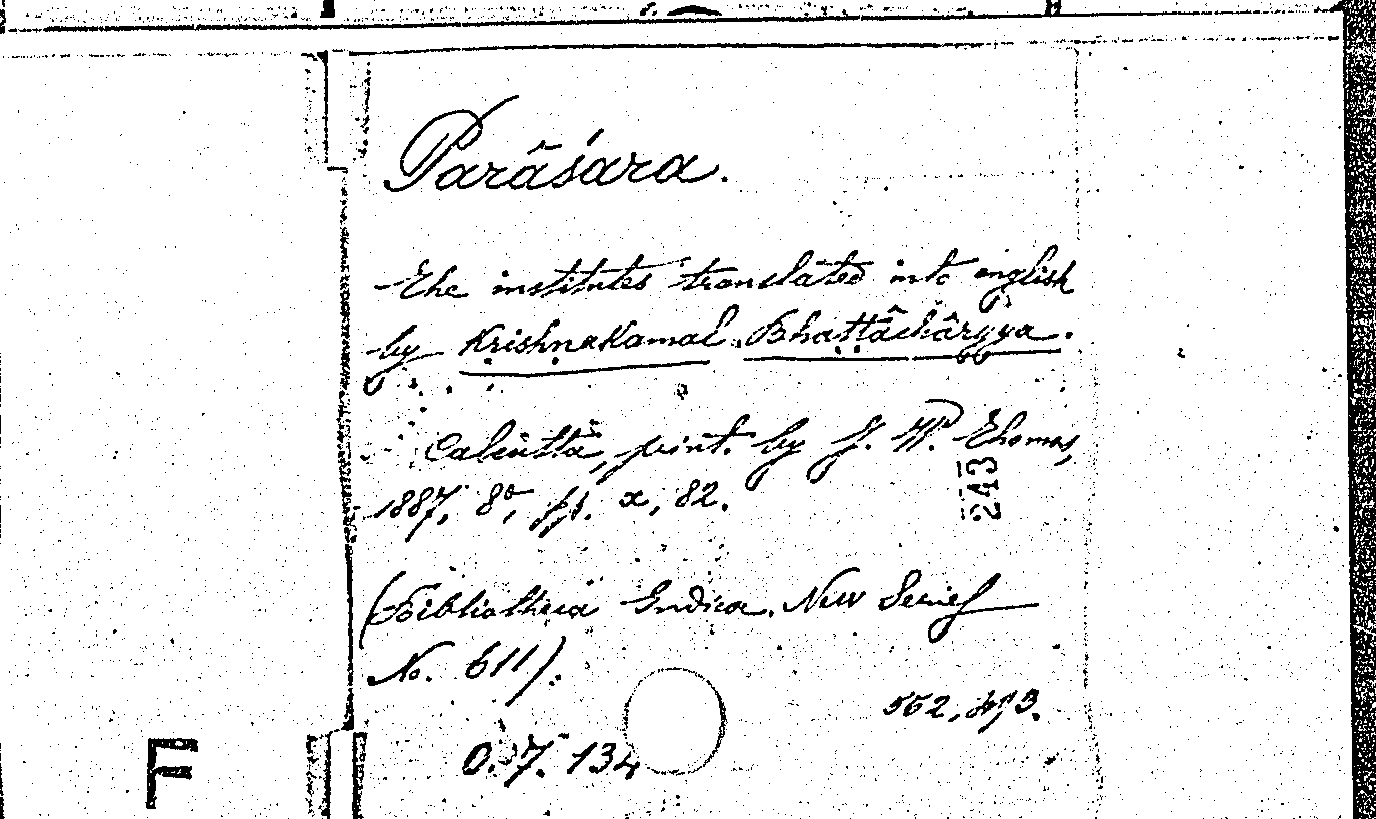 Parāśara.
The institutes translated into english
by Krishnakamal Bhaṭṭâchâryya.
Calcutta, print. by J. W. Thomas,
1887, 8°, pp. x, 82.
243
(Bibliotheca Indica. New Series
No. 611).
562,
O. 7. 134
F